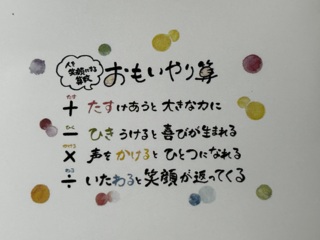 人を
笑顔にする
算数
おもいやり算
たす
+ たすけあうと 大きな力に
ひく
− ひきうけると 喜びが生まれる
かける
× 声をかけると ひとつになれる
わる
÷ いたわると 笑顔が返ってくる